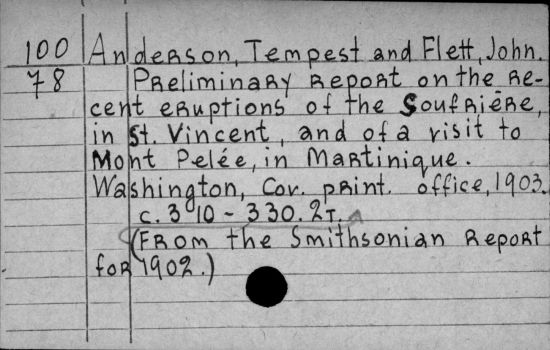 100 Anderson, Tempest and Flett, John.
78 Preliminary Report on the Re-
cent eruptions of the Soufrière,
in St. Vincent, and of a visit to
Mont Pelée, in Martinique.
Washington, Gov. print. office, 1903.
c. 310 - 330. 2т.
(From the Smithsonian Report
for 1902.)